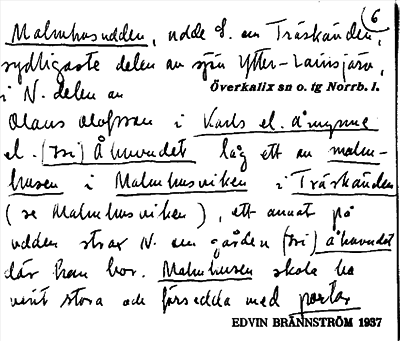 6
Malmhusudden, udde S. om Träskänden,
sydligaste delen av sjön Ytter-Lansjärv,
i N. delen av
Överkalix sn o. tg Norrb. l.
Olaus Olofsson i Karls el. åmynne
el. (tri) Åhuvudet låg ett av malm-
husen i Malmhusviken i Träskänden
(se Malmhusviken), ett annat på
udden strax N. om gården (tri) åhuvudet
där han bor. Malmhusen skola ha
varit stora och försedda med portar
EDVIN BRÄNNSTRÖM 1937